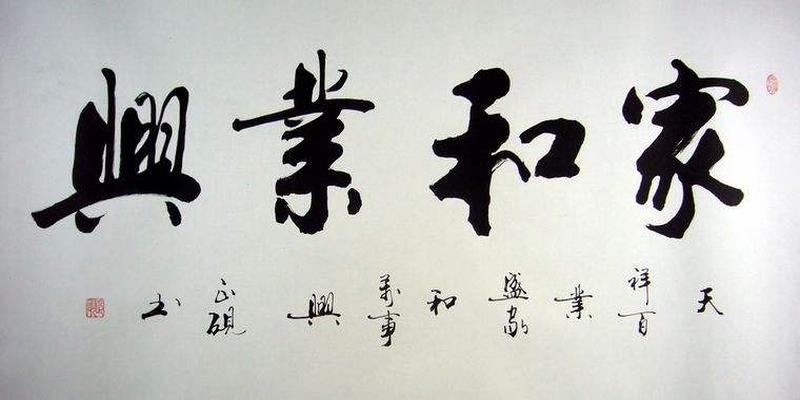 家和業興
天祥百業盛家和萬事興
正硯书